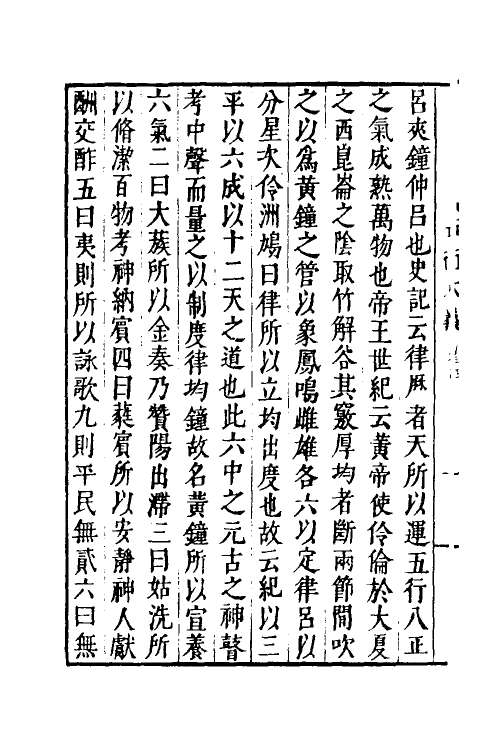 呂夾鐘仲呂也史記云律厤者天所以運五行八正
之氣成熟萬物也帝王世紀云黃帝使伶倫於大夏
之西崑崙之陰取竹解谷其竅厚均者斷兩節間吹
之以爲黃鐘之管以象鳳鳴雌雄各六以定律呂以
分星次伶洲鳩曰律所以立均出度也故云紀以三
平以六成以十二天之道也此六中之元古之神瞽
考中聲而量之以制度律均鐘故名黃鐘所以宣養
六氣二曰大蔟所以金奏乃贊陽出滯三曰姑洗所
以脩潔百物考神納賓四曰蕤賓所以安靜神人獻
酬交酢五曰夷則所以詠歌九則平民無貳六曰無